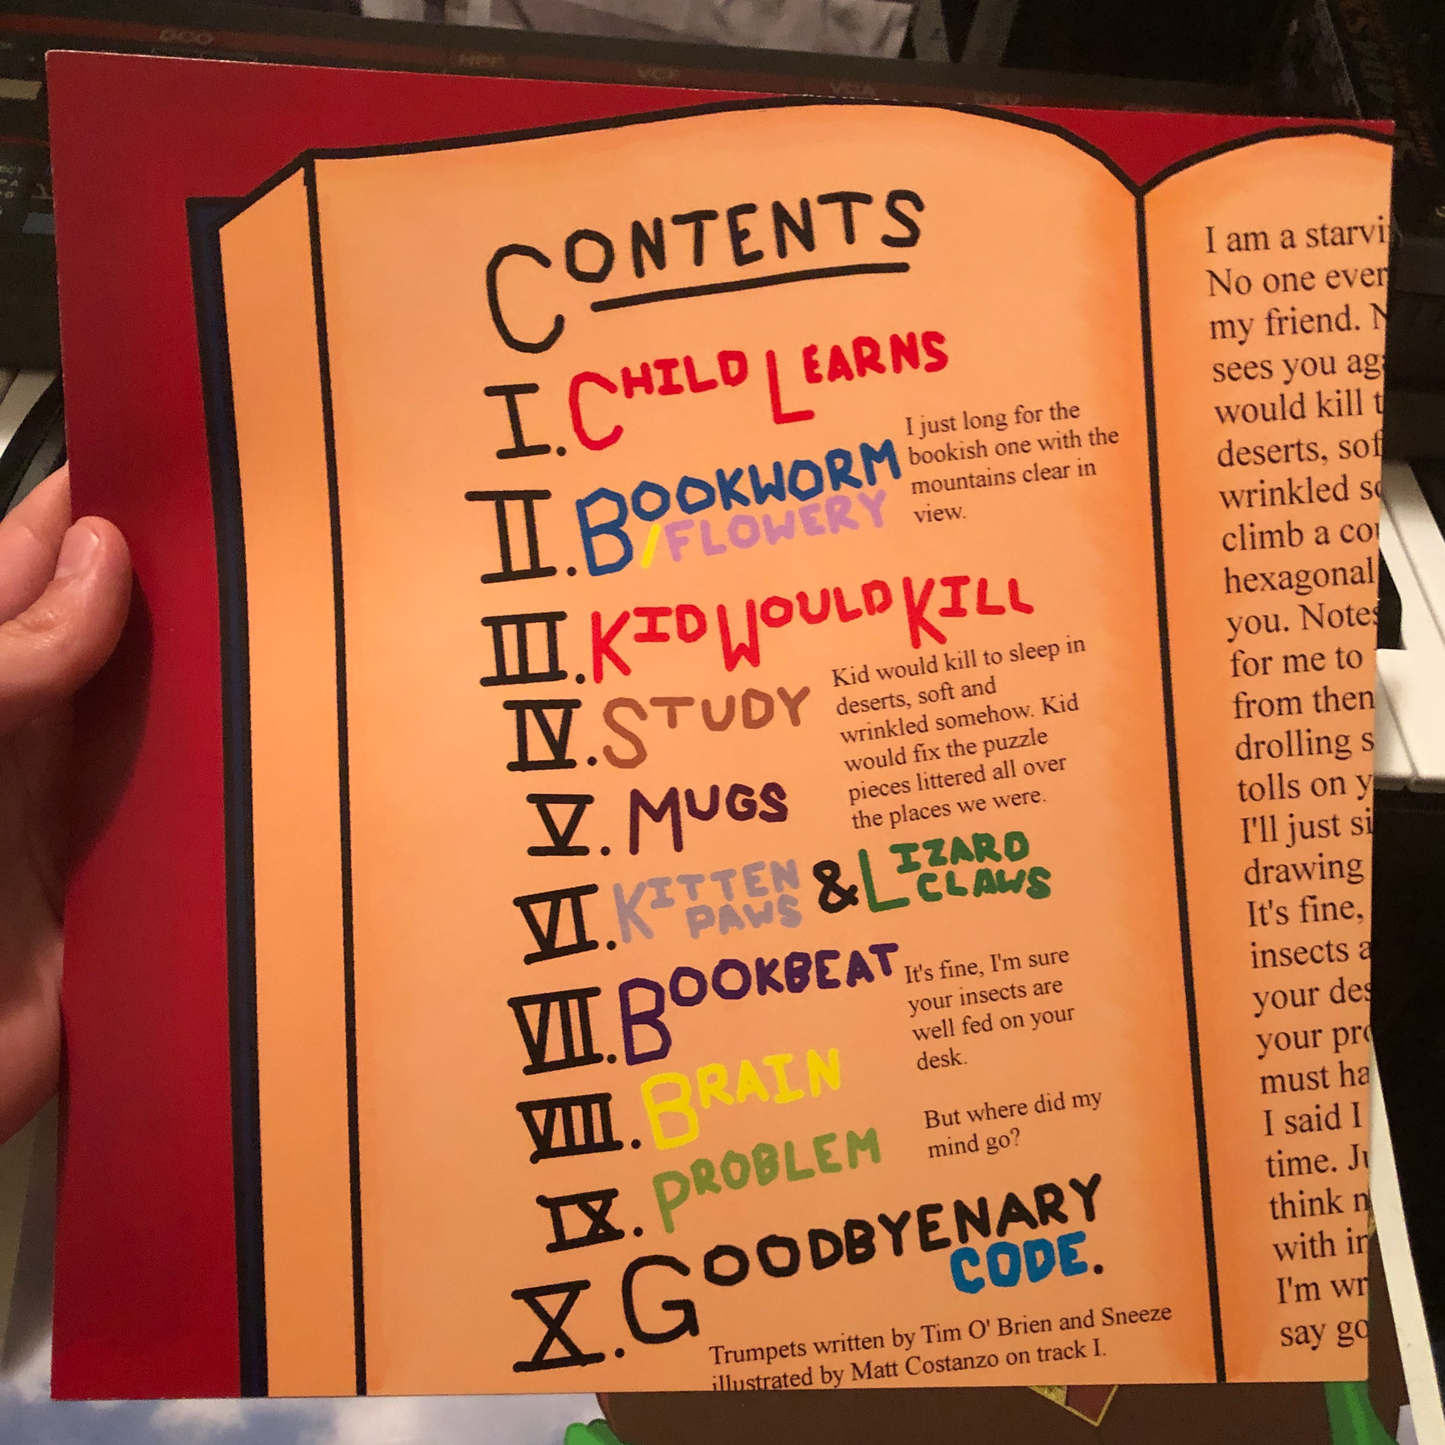 DCO
HPF
VCF
VCA
CONTENTS
I. CHILD LEARNS
I just long for the
bookish one with the
mountains clear in
view.
II. BOOKWORM
/FLOWERY
III. KID WOULD KILL
Kid would kill to sleep in
deserts, soft and
wrinkled somehow. Kid
would fix the puzzle
pieces littered all over
the places we were.
IV. STUDY
V. MUGS
VI. KITTEN PAWS & LIZARD CLAWS
VII. BOOKBEAT
It's fine, I'm sure
your insects are
well fed on your
desk.
VIII. BRAIN
But where did my
mind go?
IX. PROBLEM
X. GOODBYENARY
CODE.
Trumpets written by Tim O' Brien and Sneeze
illustrated by Matt Costanzo on track I.
I am a starvi
No one ever
my friend. N
sees you aga
would kill t
deserts, sof
wrinkled so
climb a co
hexagonal
you. Notes
for me to
from then
drolling s
tolls on y
I'll just si
drawing
It's fine,
insects a
your des
your pro
must ha
I said I
time. Ju
think n
with in
I'm wr
say go